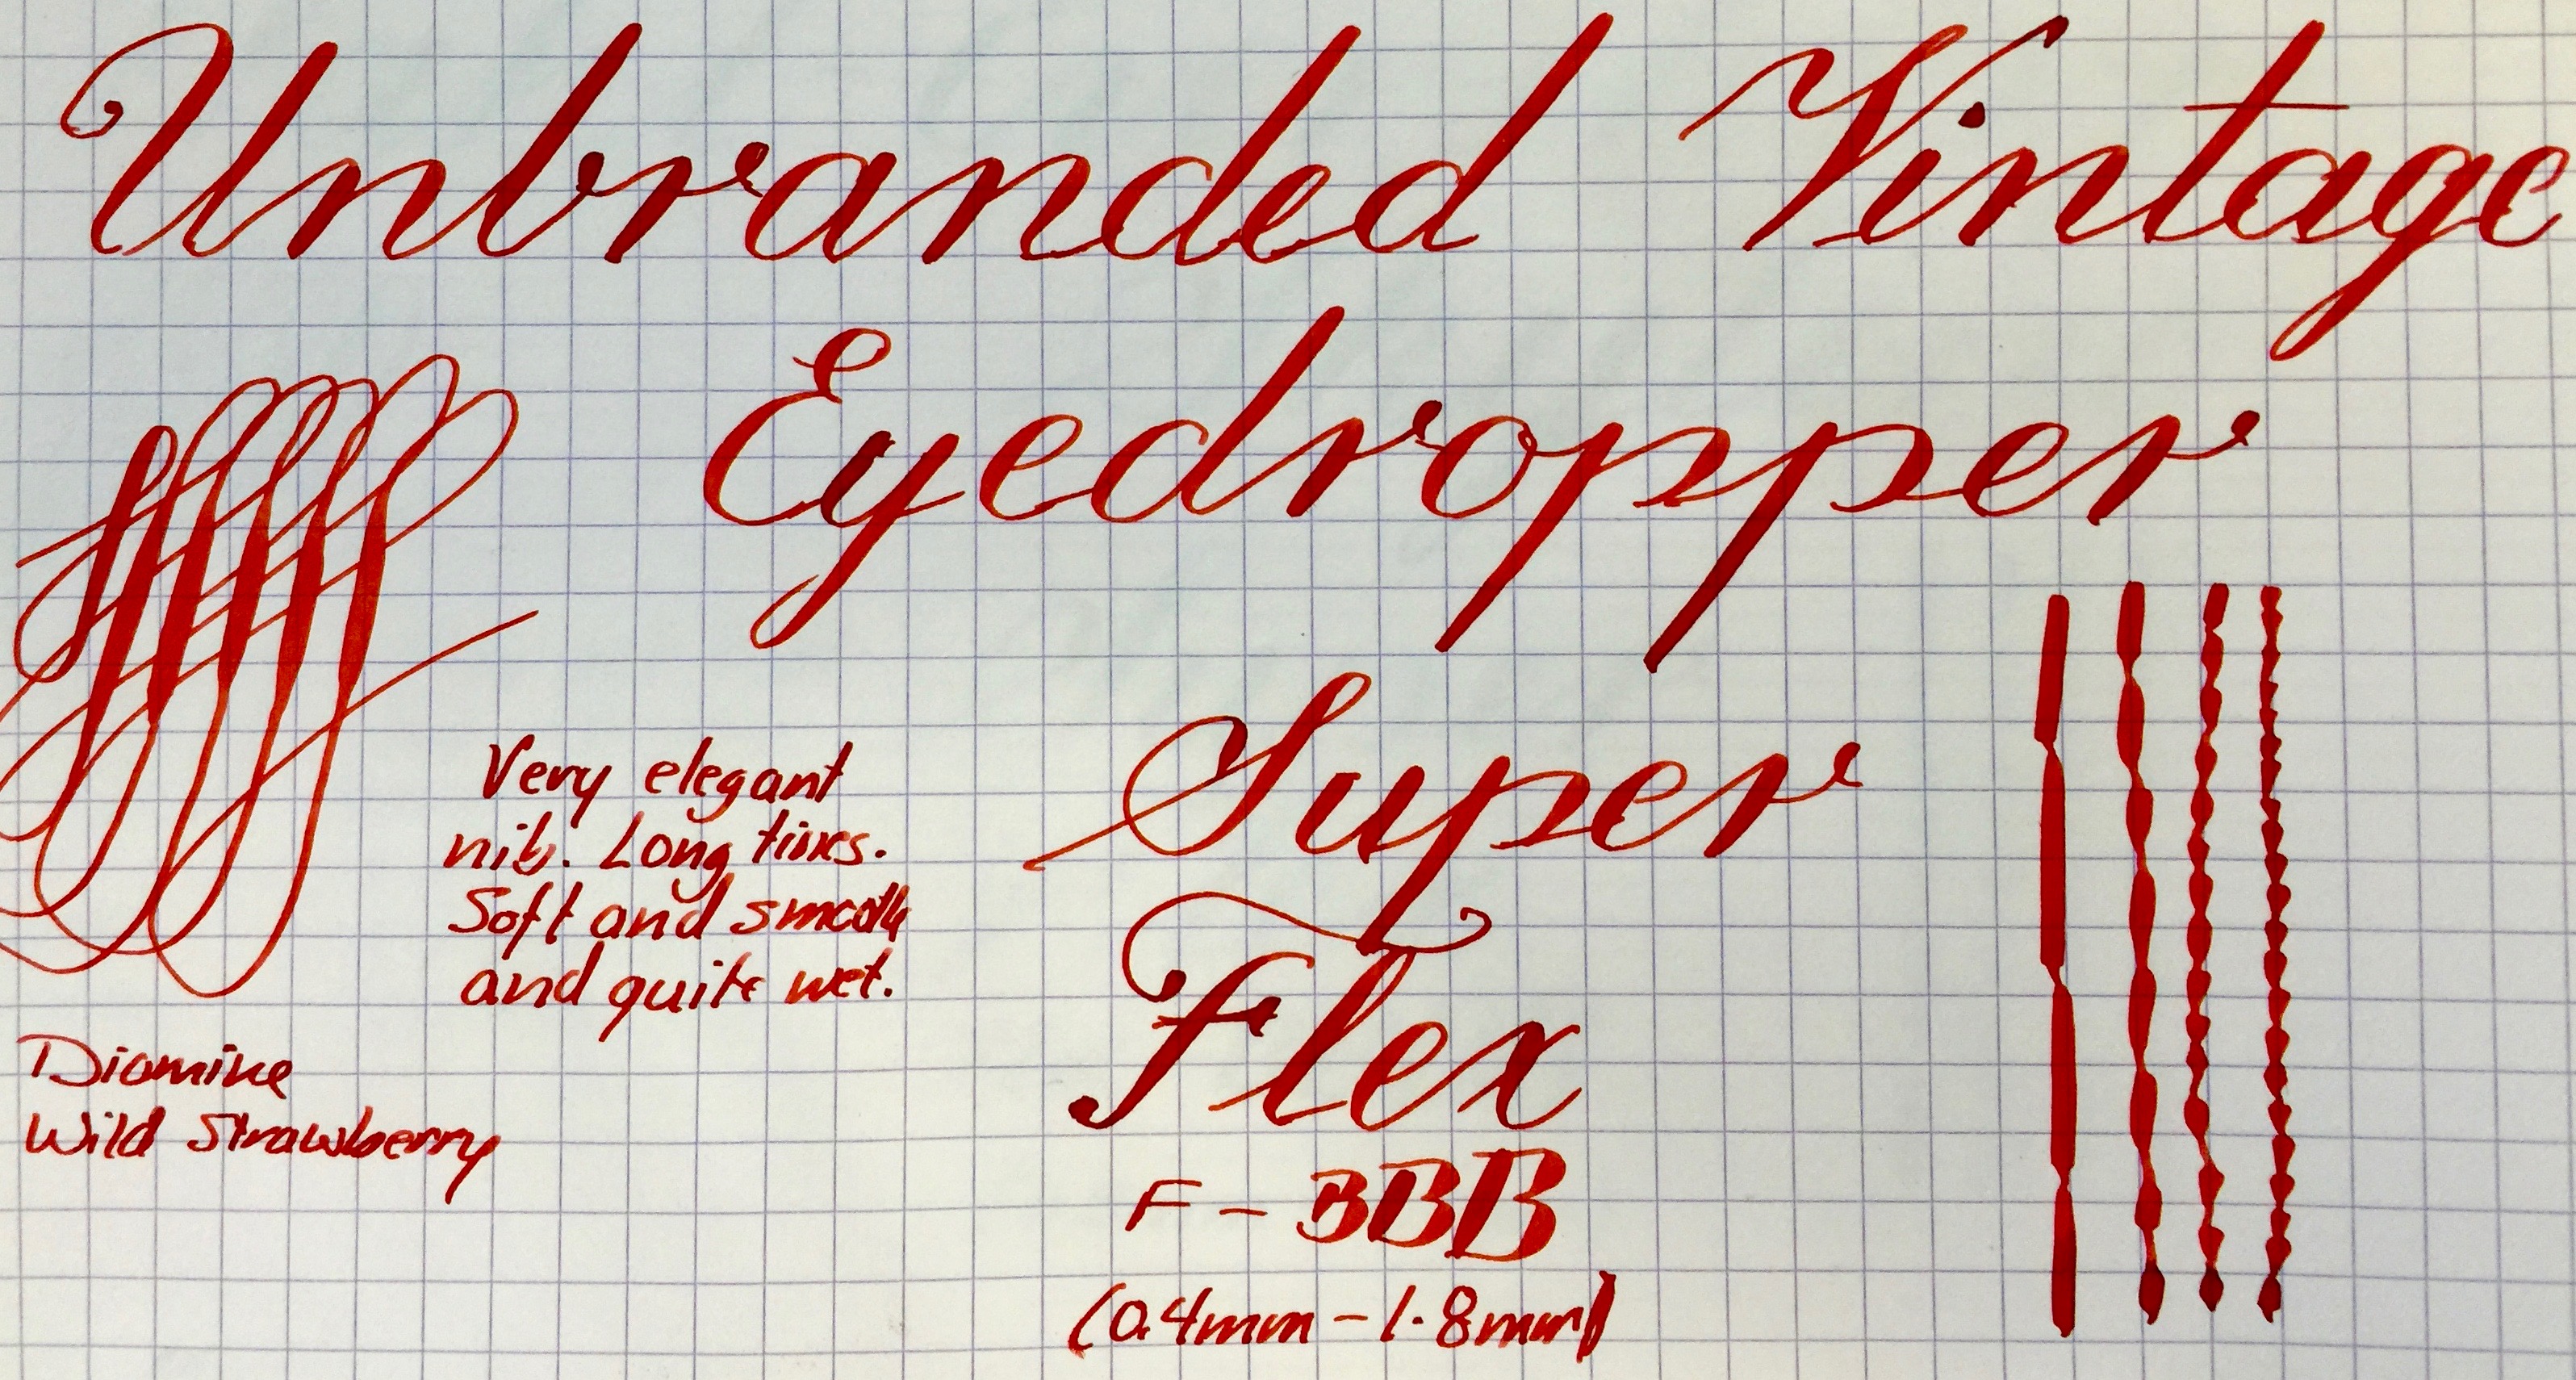 Unbranded Vintage
Eyedropper
Super
Flex
F - BBB
(0.4mm - 1.8mm)
Very elegant
nib. Long tines.
Soft and smooth
and quite wet.
Diamine
Wild Strawberry